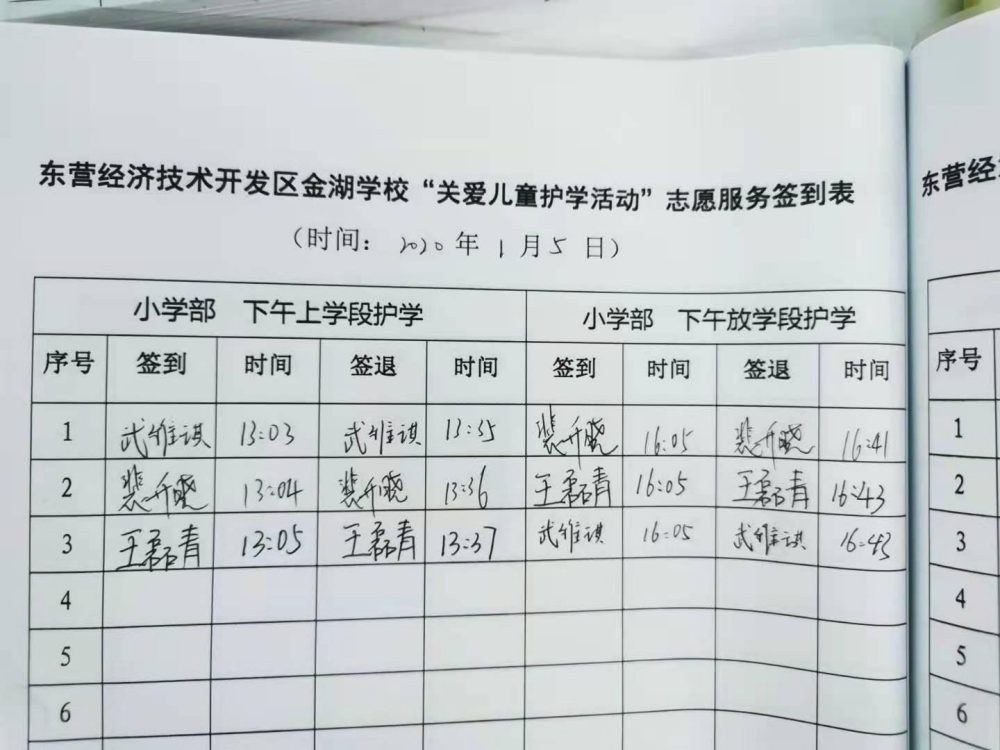 东营经济技术开发区金湖学校“关爱儿童护学活动”志愿服务签到表
（时间： 2020 年 1 月 5 日）
小学部 下午上学段护学 小学部 下午放学段护学
序号 签到 时间 签退 时间 签到 时间 签退 时间
1 武维琪 13:03 武维琪 13:35 裴升晓 16:05 裴升晓 16:41
2 裴升晓 13:04 裴升晓 13:36 王磊青 16:05 王磊青 16:43
3 王磊青 13:05 王磊青 13:37 武维琪 16:05 武维琪 16:43
4
5
6
东营经
序号
1
2
3
4
5
6